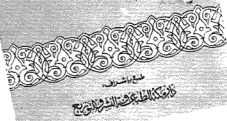 طبع بإشراف:
دار مكة للطباعة والنشر والتوزيع